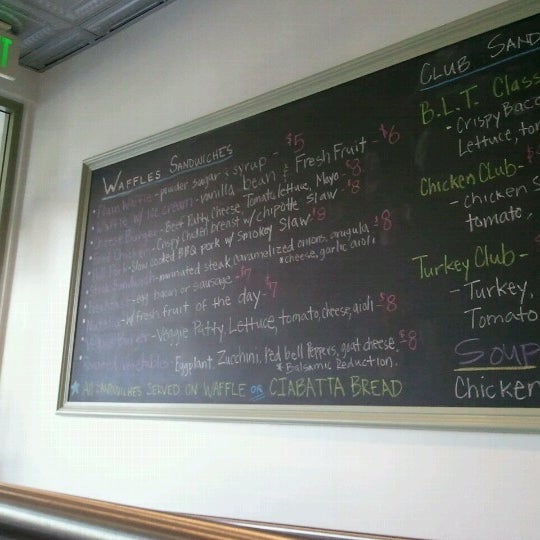 T
WAFFLES SANDWICHES
Waffle - powder sugar & syrup - $5
w/ ice cream - vanilla bean & Fresh Fruit - $6
Burger - Beef Patty, Cheese Tomato, Lettuce, Mayo $8
Crispy Chicken breast w/ chipotle Slaw $8
Slow cooked BBQ pork w/ Smokey Slaw $8
- marinated steak, caramelized onions, arugula, $8
*cheese, garlic aioli
- egg bacon or sausage - $7
- w/ fresh fruit of the day - $7
- Veggie Patty, Lettuce, tomato, cheese, aioli - $8
vegetables - Eggplant, Zucchini, Red bell Peppers, goat cheese. - $8
* Balsamic Reduction.
All SANDWICHES SERVED ON WAFFLE OR CIABATTA BREAD
CLUB SAND
B.L.T. Class
- Crispy Baco
Lettuce, tom
Chicken Club -
- chicken S
tomato,
Turkey Club -
- Turkey,
Tomato
SOUP
Chicken